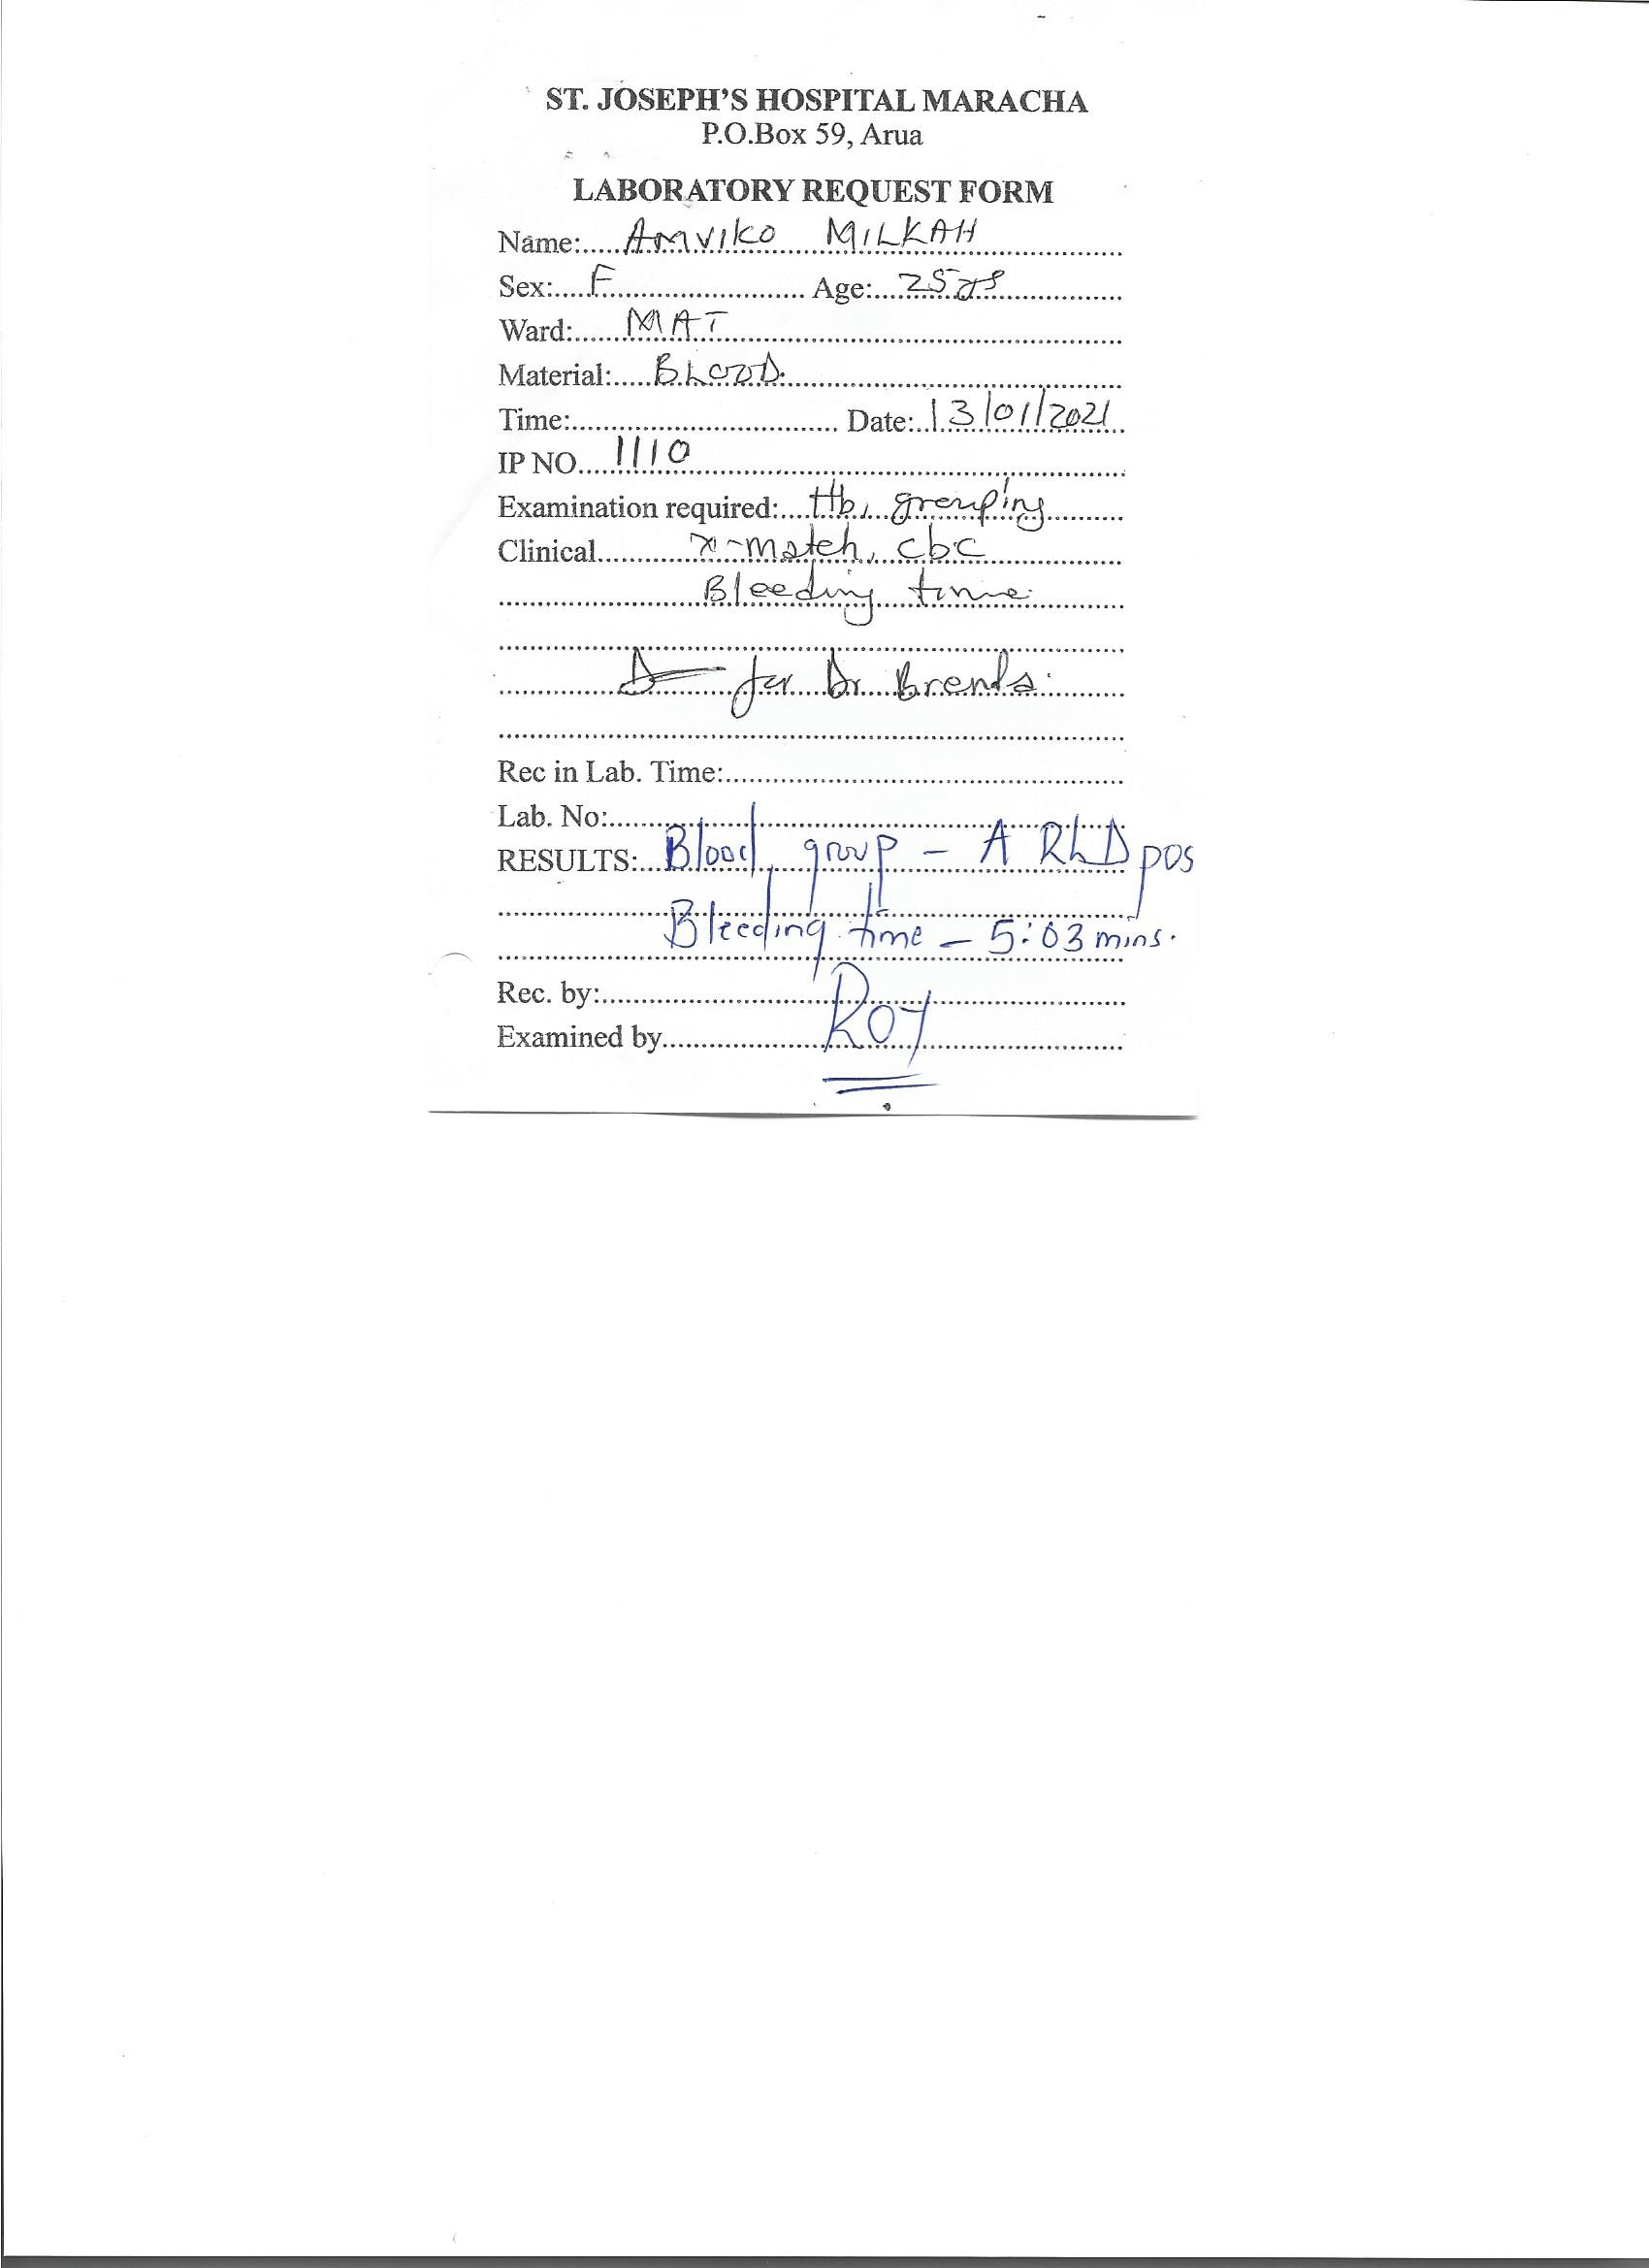 ST. JOSEPH'S HOSPITAL MARACHA
P.O.Box 59, Arua
LABORATORY REQUEST FORM
Name:.....AMVIKO MILKAH
Sex:....F........................ Age:....25yrs
Ward:......MAT
Material:.....BLOOD.
Time:.................................. Date:..13/01/2021
IP NO....1110
Examination required:....Hb, grouping
Clinical............x-match, cbc
Bleeding time
for Dr Brenda.
Rec in Lab. Time:
Lab. No:
RESULTS:...Blood group - A RhD pos
Bleeding time - 5:03 mins.
Rec. by:
Examined by....................ROY